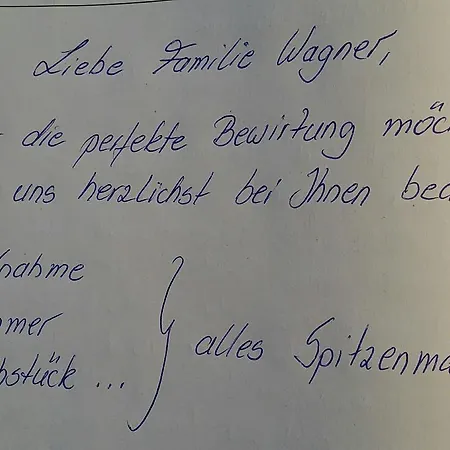 Liebe Familie Wagner,
die perfekte Bewirtung möc
uns herzlichst bei Ihnen bed
nahme
mer
bstück ... } alles Spitzenma